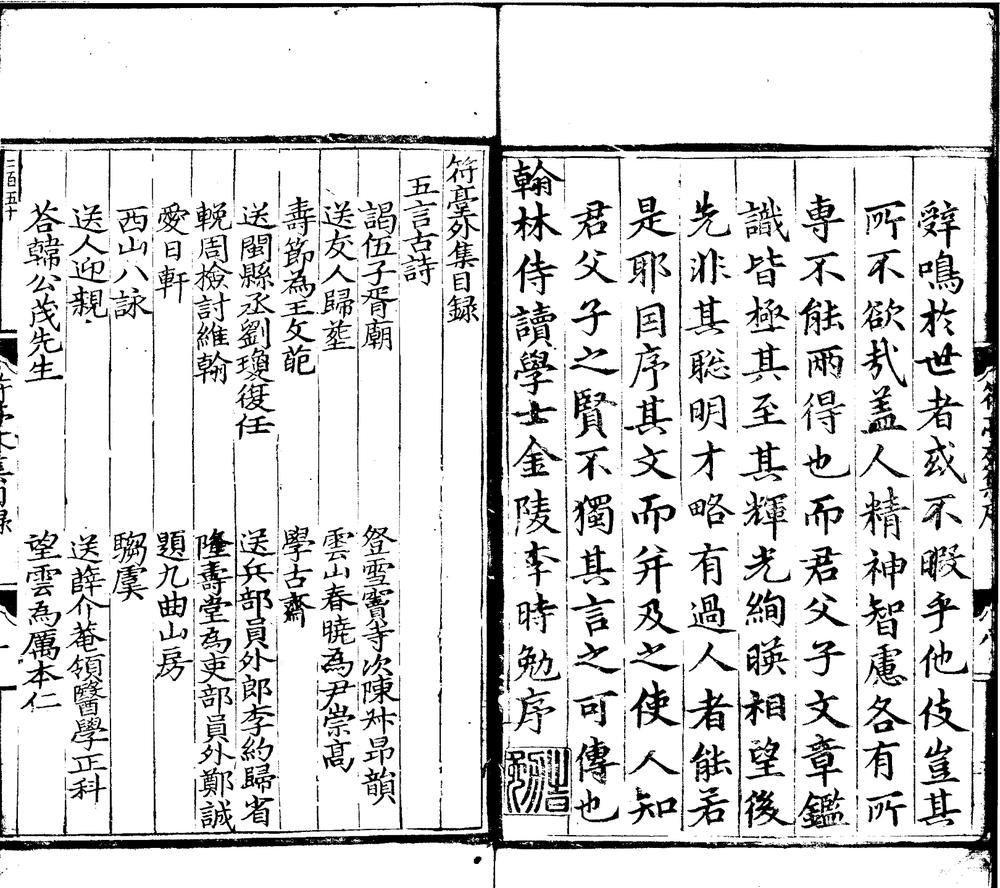 辤鳴於世者或不暇乎他伎豈其
所不欲㢤盖人精神智慮各有所
専不能兩得也而君父子文章鑑
識皆極其至其輝光絢暎相望後
先非其聡明才略有過人者能若
是耶因序其文而并及之使人知
君父子之賢不獨其言之可傳也
翰林侍讀學士金陵李時勉序
符臺外集目録
五言古詩
謁伍子胥廟
登雪竇寺次陳叔昂韻
送友人歸塟
雲山春曉為尹崇髙
壽節為王文
學古齋
送閩縣丞劉瓊復任
送兵部員外郎李約歸省
輓周撿討維翰
隆壽堂為吏部員外鄭誠
愛日軒
題九曲山房
西山八詠
騶虞
送人迎親
送薛介菴領醫學正科
荅韓公茂先生
望雲為厲本仁
二百五十
符臺外集目録
一
符臺外集序
八